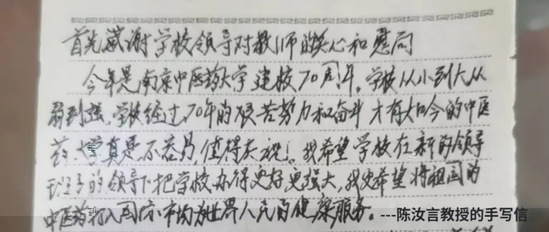 首先感谢学校领导对教师的关心和慰问
今年是南京中医药大学建校70周年，学校从小到大从
弱到强，学校经过70年的艰苦努力和奋斗才有如今的中医
药大学真是不容易，值得庆祝！我希望学校在新的领导
班子的领导下把学校办得更好更强大，我更希望将祖国的
中医药打入国际市场为世界人民的健康服务。
---陈汝言教授的手写信